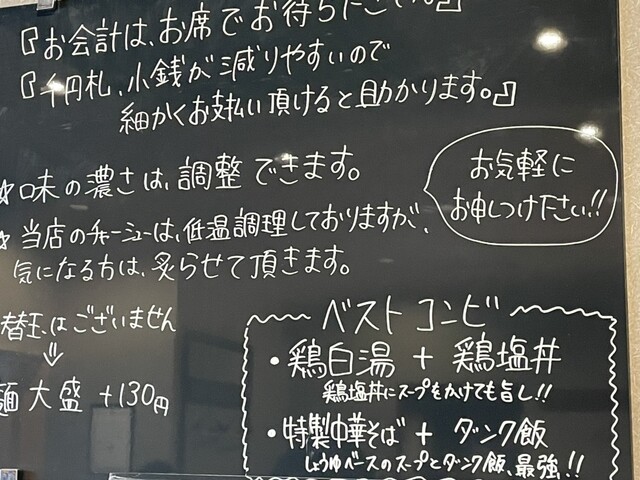 『お会計は、お席でお待ちください。』
『千円札、小銭が減りやすいので
細かくお支払い頂けると助かります。』
☆味の濃さは、調整できます。
お気軽に
お申しつけ下さい!!
☆当店のチャーシューは、低温調理しておりますが、
気になる方は、炙らせて頂きます。
替玉はございません
⇓
麺大盛 +130円
ベストコンビ
・鶏白湯 + 鶏塩丼
鶏塩丼にスープをかけても旨し!!
・特製中華そば + ダンク飯
しょうゆベースのスープとダンク飯、最強!!